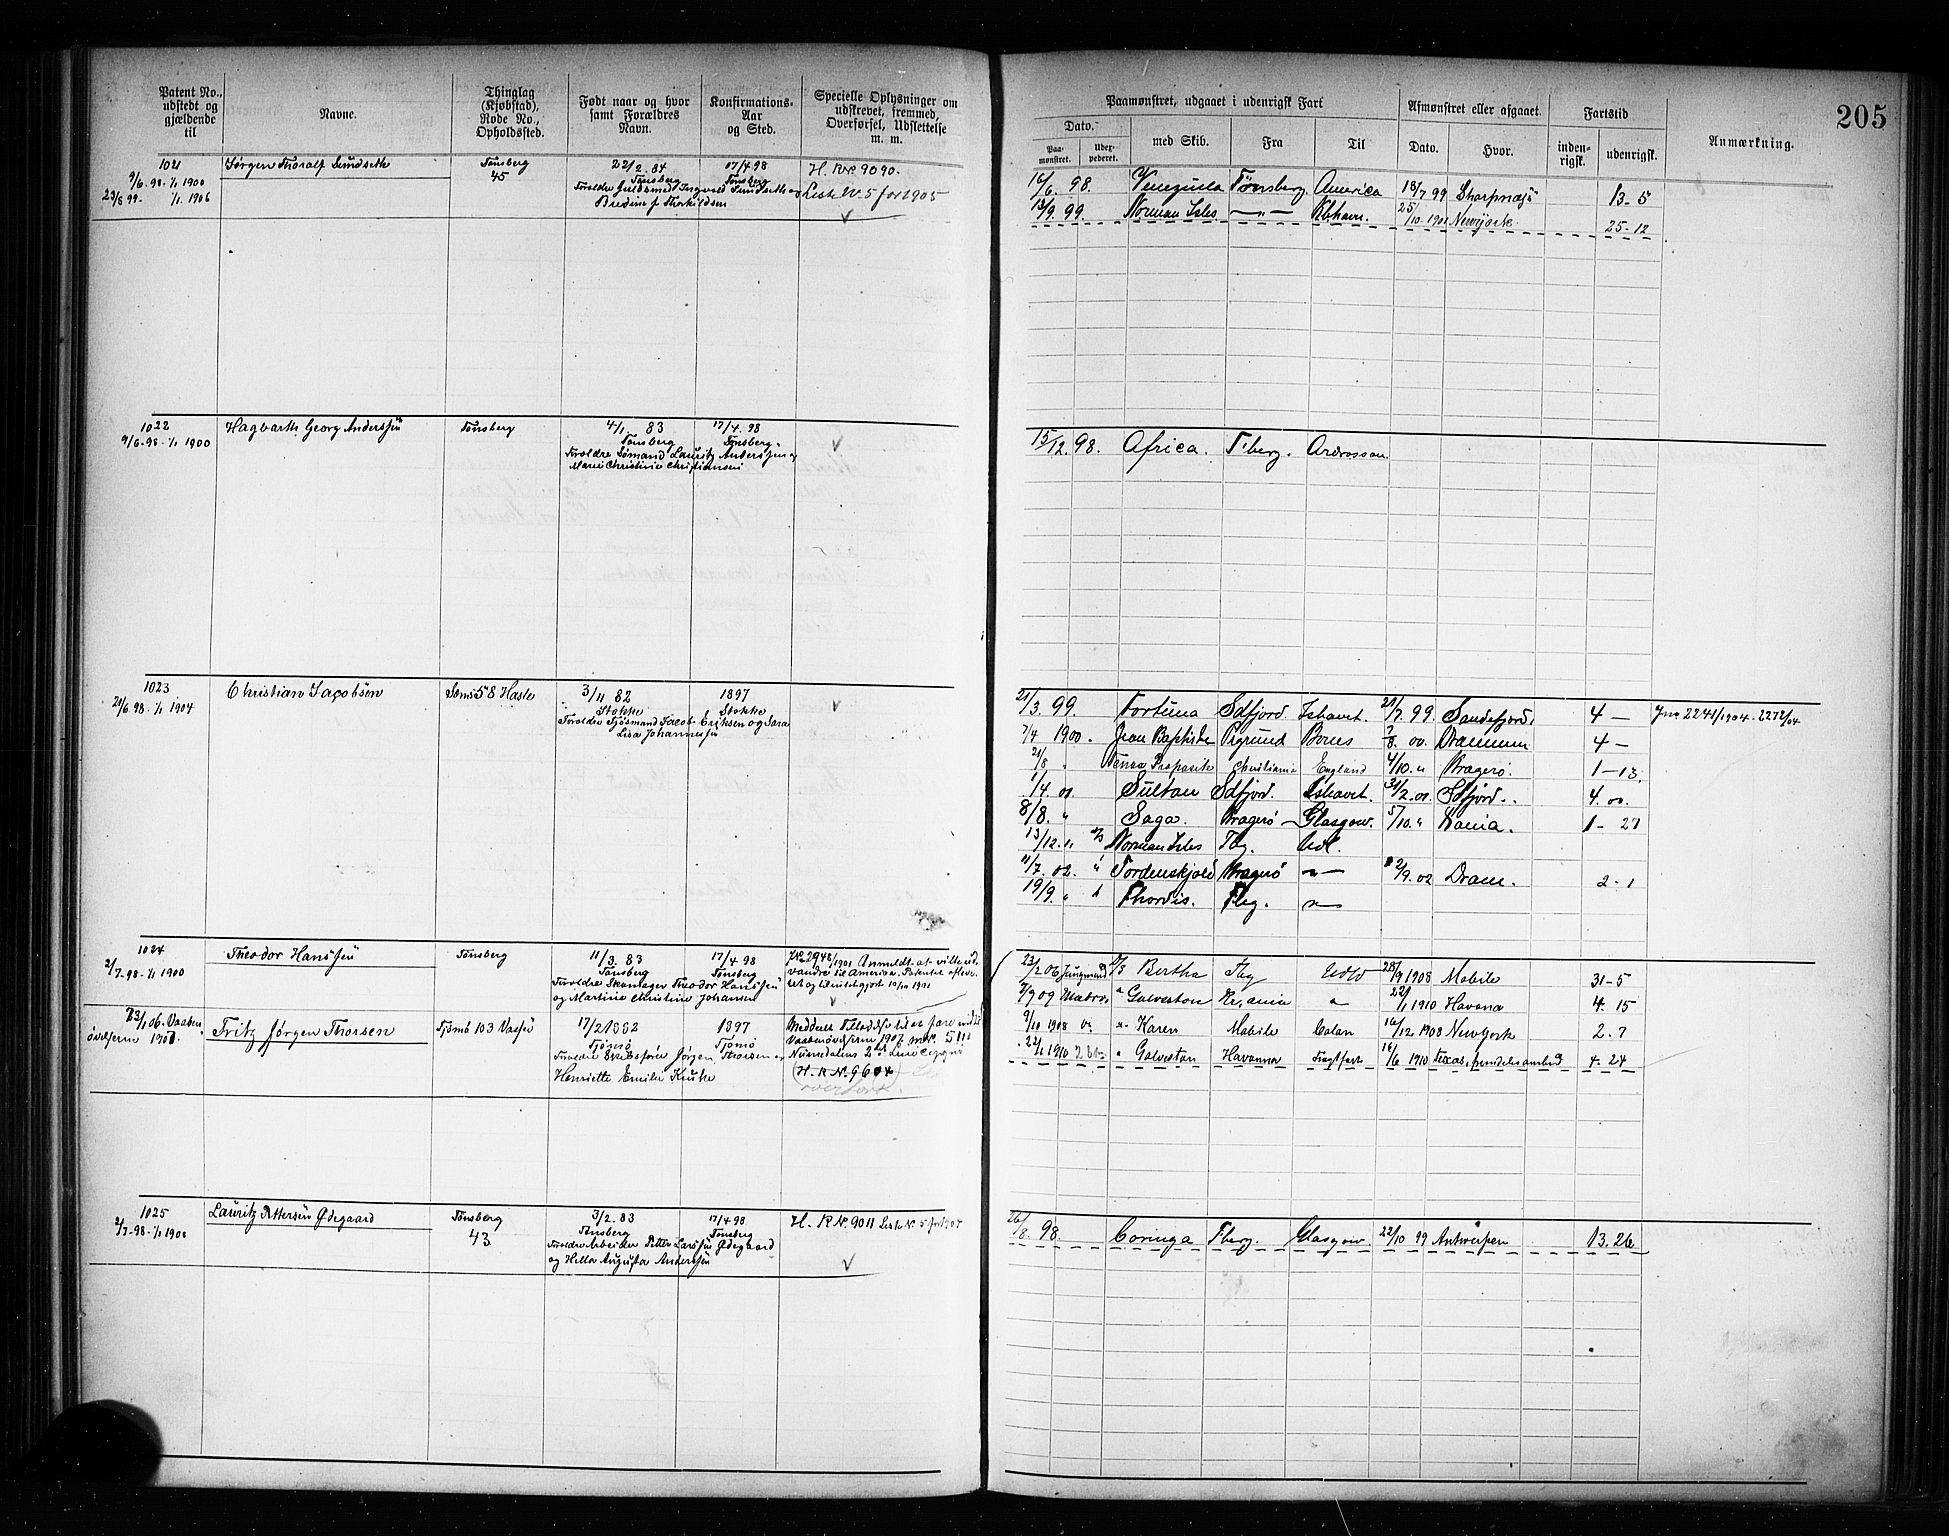 205
Patent No., udstedt og gjældende til
Navne.
Thinglag (Kjøbstad), Rode No., Opholdssted.
Født naar og hvor samt Forældres Navn.
Konfirmations-Aar og Sted.
Specielle Oplysninger om udskrevet, fremmed, Overførsel, Udslettelse m. m.
Paamønstret, udgaaet i udenrigsk Fart
Afmønstret eller afgaaet.
Fartstid
Anmærkning.
Dato.
Paa-mønstret.
Udex-pederet.
med Skib.
Fra
Til
Dato.
Hvor.
inden-rigsk.
udenrigsk.
1021
9/6-98-1/1 1900
23/8 99- 1/1 1906
Jørgen Thoralf Sundseth
Tønsberg
45
22/2. 84
Tønsberg
Forældre Guldsmed Ingvald Sundseth og
Bredine f. Thorkildsen
17/4 98
Tønsberg
H. R. № 9090.
Liste № 5 for 1905
16/6. 98. Venezuela Tønsberg America 18/7 99 Sharpness 13-5
13/9. 99. Norman Isles —„— Kbhavn. 25/10. 1901 Newyork 25-12
1022
9/6-98-1/1 1900
Hagbarth Georg Anderssen
Tønsberg
4/1. 83
Tønsberg
Forældre Sømand Lauritz Anderssen og
Marie Christine Christiansen
17/4. 98
Tønsberg.
15/12. 98. Africa. T'berg. Ardrossan
1023
21/6. 98. 1/1 1904
Christian Jacobsen
Sems 58 Hasle
3/11 82
Stokke
Forældre Tjømand Jacob Eriksen og Sara
Lisa Johannessen
1897
Stokke
21/3. 99. Fortuna Sdfjord Ishavet. 21/7. 99. Sandefjord. 4 — Jno 2241/1904. 2272/04
7/4 1900. Jean Baptiste Psgrund 00. Drammen 4 —
21/8 „ Christiania England 4/10. „ Kragerø. 1-13.
1/4. 01 Sultan Sdfjord. Ishavet. 31/2. 01. Sdfjord. 4. 00.
8/8. „ Saga. Kragerø — Glasgow. 5/10. „ Dania. 1- 27
13/12. „ Norman Isles Tbg. Udl.
11/7. 02. „ Tordenskjold Kragerø —„— 12/9. 02 Dram. 2-1
19/9. „ Thordis. Tbg. —„—
1024
2/7-98-1/1 1900
Theodor Hanssen
Tønsberg
11/3. 83
Tønsberg
Forældre Skomager Theodor Hanssen
og Martine Christine Johansen
17/4 98
Tønsberg
J№ 2948/1901 Anmeldt at ville ud-
vandre til America. Patentet afleve-
ret og tilintetgjort 10/10 1901
23/1 06. Vaaben-
øvelserne 1900.
Fritz Jørgen Thorsen
Tjømø 103 Vassøi
17/2 1882
Tjømø
Forældre Skibsfører Jørgen Thorsen og
Henriette Emilie Kruke
1897
Tjømø
Vaabenøvelserne 1907 m. № 5110
Numedalens 2den Linie Compagni
(H. R. N. 9604)
overført.
23/2 06 Jungmand Bertha Tbg Udl 28/9 1908 Mobile 31-5
7/9 09 Matros „ Galveston Kr.ania „ 22/1 1910 Havana 4. 15
9/10 1908 „ Karen Mobile Colon 16/12 1908 NewYork 2. 7
22/1 1910 „ Galveston Havanna Fragtfart 16/6 1910 Texas, 4. 24
1025
2/7-98-1/1 1900
Lauritz Pettersen Ødegaard
Tønsberg
43
3/2. 83
Tønsberg
Forældre Arbeider Petter Larssen Ødegaard
og Hella Augusta Anderssen
17/4 98
Tønsberg
H. R. №. 9011 Liste №. 5 for 1905
26/8. 98. Coringa Tberg. Glasgow 22/10 99 Antwerpen 13. 26